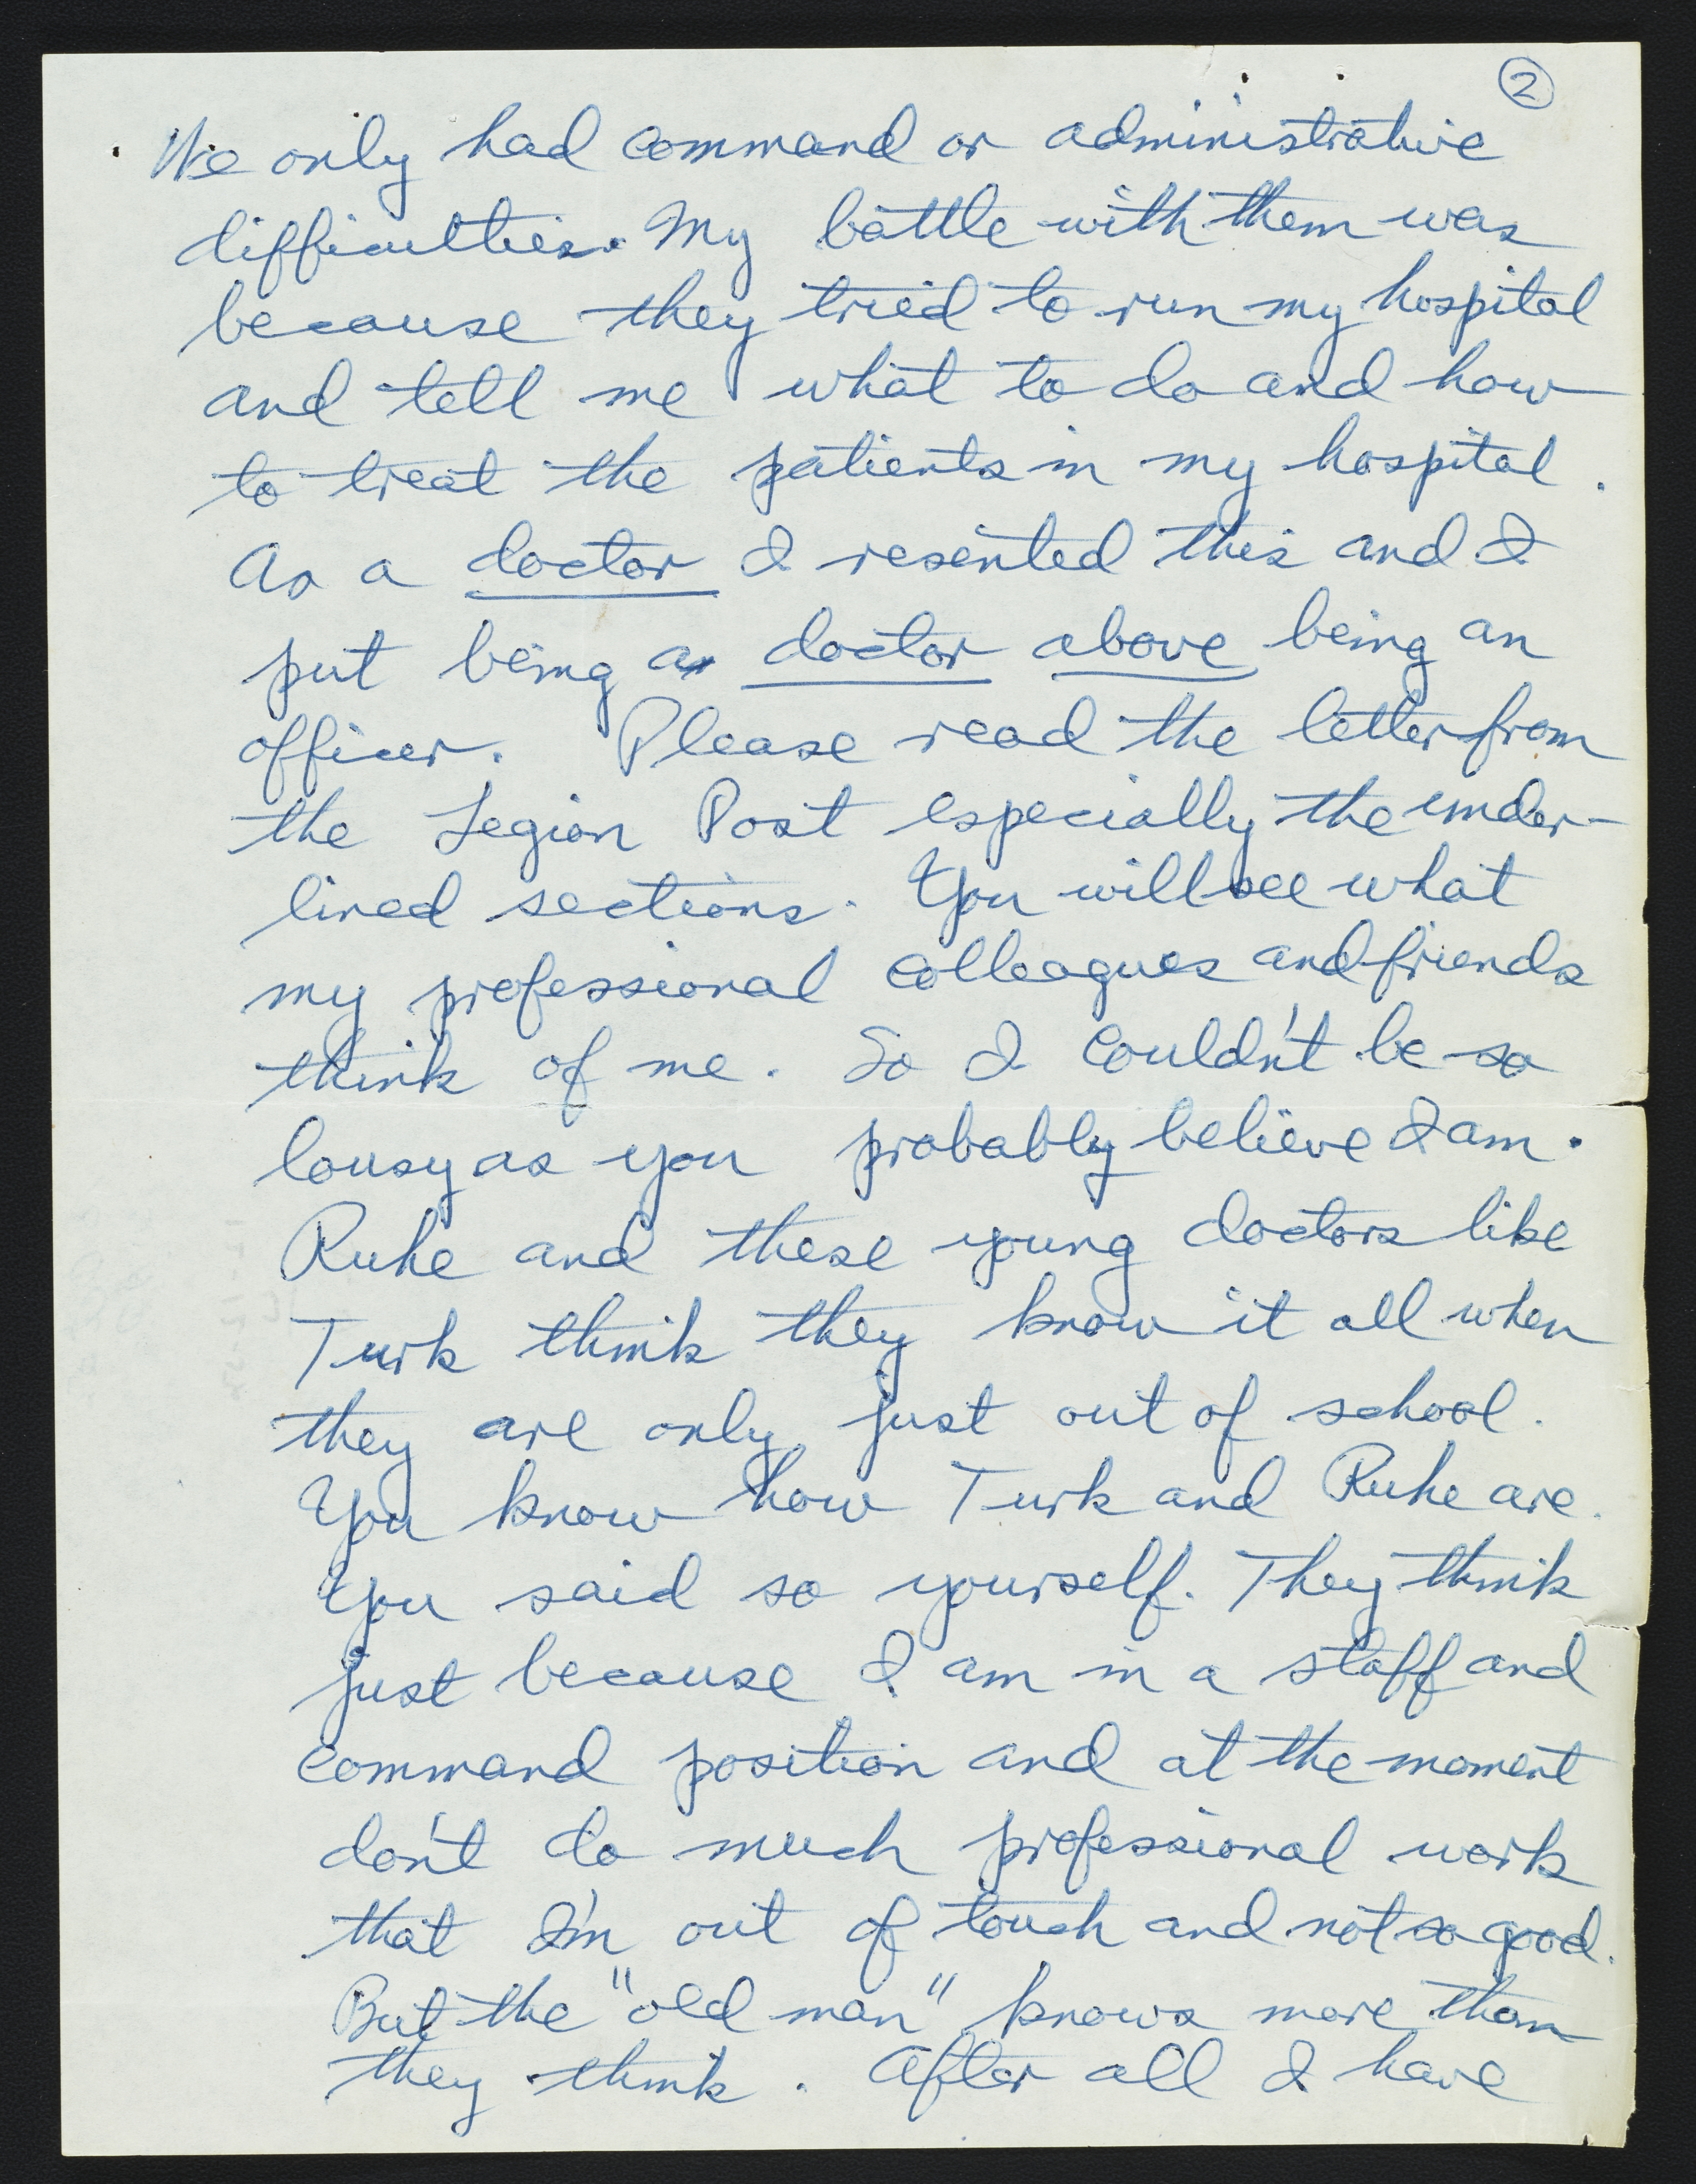 ②
We only had command or administrative
difficulties. My battle with them was
because they tried to run my hospital
and tell me what to do and how
to treat the patients in my hospital.
As a doctor I resented this and I
put being a doctor above being an
officer. Please read the letter from
the Legion Post especially the under-
lined sections. You will see what
my professional colleagues and friends
think of me. So I couldn't be so
lousy as you probably believe I am.
Ruhe and these young doctors like
Turk think they know it all when
they are only just out of school.
You know how Turk and Ruhe are.
You said so yourself. They think
just because I am in a staff and
command position and at the moment
don't do much professional work
that I'm out of touch and not so good.
But the "old man" knows more than
they think. After all I have